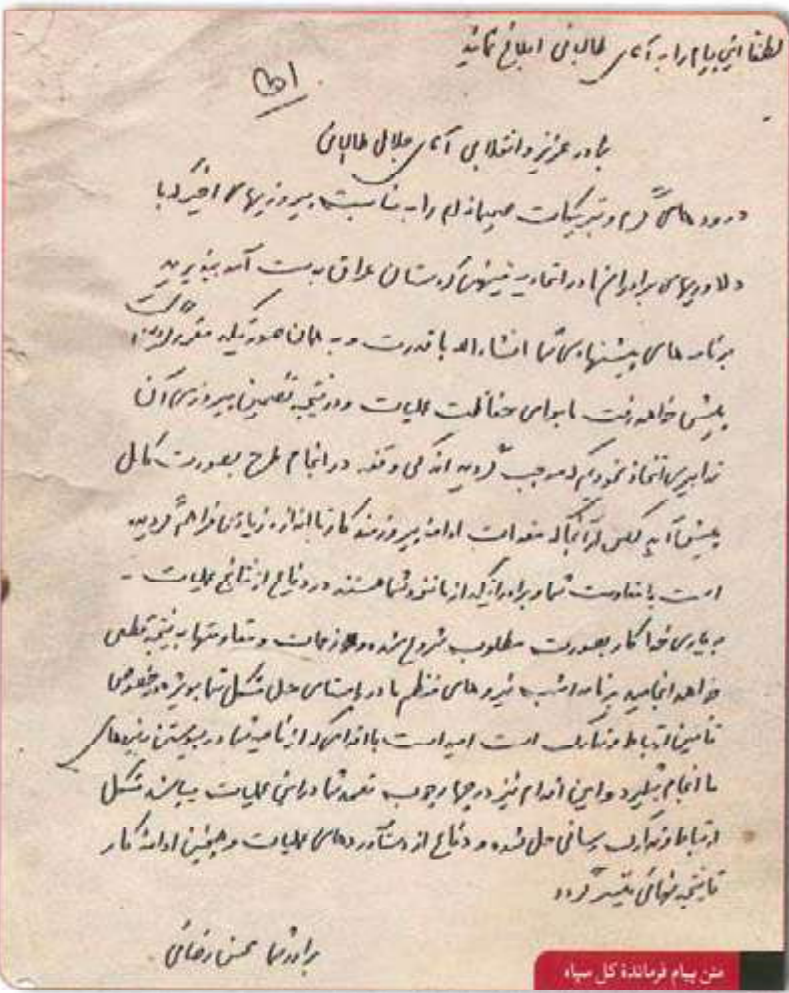 لطفا این پیام را به آقای طالبانی ابلاغ نمائید
برادر عزیز و انقلابی آقای جلال طالبانی
درودهای گرم و تبریکات صمیمانه‌ام را به مناسبت پیروزیهای اخیر که با
دلاوریهای برادران ما در اتحادیه میهنی کردستان عراق بدست آمد بپذیرید
برنامه های پیشنهادی شما انشاءاله با قدرت و به همان صورتیکه مقرر گردیده است
به پیش خواهد رفت ما برای حفاظت عملیات و در نتیجه تضمین پیروزی آن
تدابیری اتخاذ نمودیم که موجب گردید اندکی وقفه در انجام طرح بصورت کامل
پیش آید لکن از آنجا که مقدمات ادامه پیروزمند کار تا اندازه زیادی فراهم گردیده
است با مقاومت شما و برادرانیکه از ما نزد شما هستند در دفاع از نتایج عملیات -
به یاری خدا کار بصورت مطلوب شروع شده و زحمات و مقاومتها به نتیجه قطعی
خواهد انجامید برنامه امشب نیروهای منظم ما در راستای حل مشکل شما بویژه در خصوص
تأمین ارتباط و تدارک است امید است با اقدامی که از ناحیه شما در پیوستن به نیروهای
ما انجام بگیرد و این اقدام نیز در چهارچوب تعهد شما در این عملیات میباشد مشکل
ارتباط و تدارک رسانی حل شده و دفاع از دستآوردهای عملیات و همچنین ادامه کار
تا نتیجه نهائی میسر گردد
برادر شما محسن رضائی
متن پیام فرماندهٔ کل سپاه